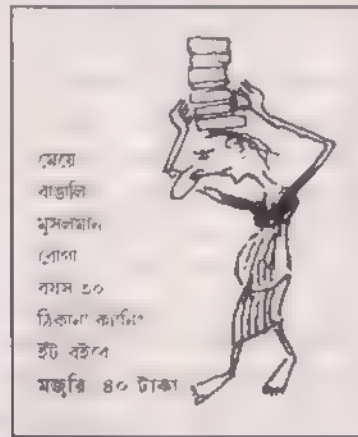 মেয়ে
বাঙালি
মুসলমান
রোগা
বয়স ৩০
ঠিকানা
ইট বইবে
মজুরি ৪০ টাকা